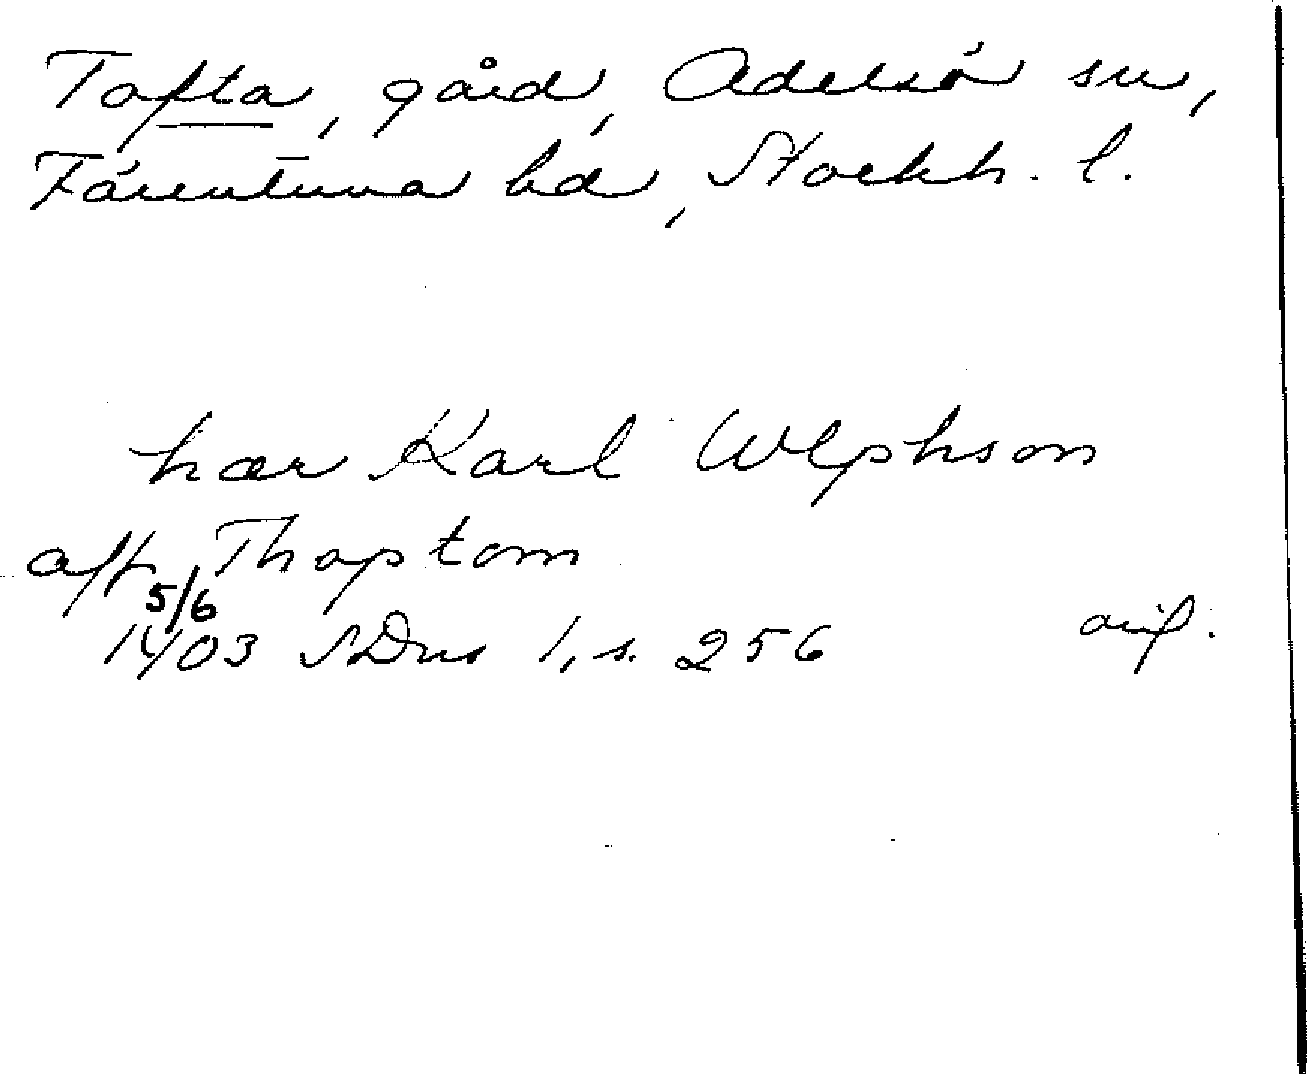 Tofta, gård, Adelsö sn,
Färentuna hd, Stockh. l.
hær Karl Wlphson
aff Thoptom
5/6
1403 SDns 1, s. 256 orig.